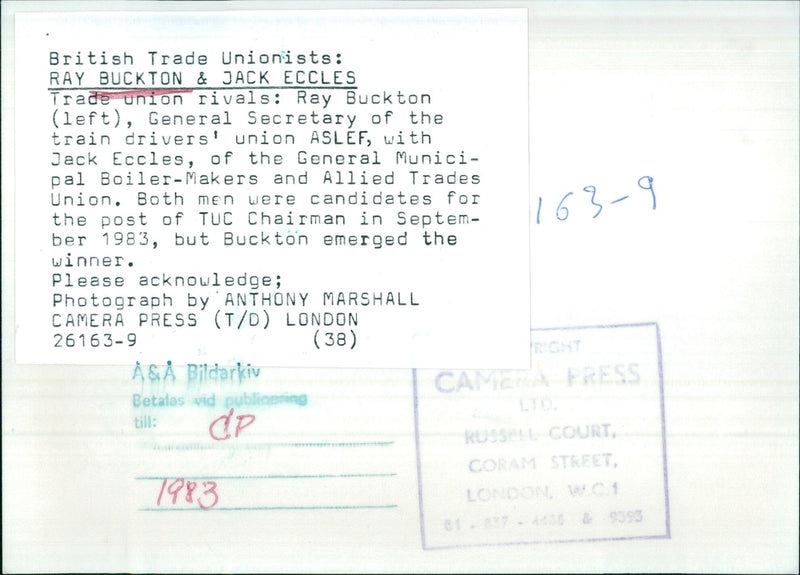 British Trade Unionists:
RAY BUCKTON & JACK ECCLES
Trade union rivals: Ray Buckton
(left), General Secretary of the
train drivers' union ASLEF, with
Jack Eccles, of the General Munici-
pal Boiler-Makers and Allied Trades
Union. Both men were candidates for
the post of TUC Chairman in Septem-
ber 1983, but Buckton emerged the
winner.
Please acknowledge;
Photograph by ANTHONY MARSHALL
CAMERA PRESS (T/D) LONDON
26163-9 (38)
163-9
A&Å Bildarkiv
Betalas vid publicering
till: CP
1983
RIGHT
CAMERA PRESS
LTD.
RUSSELL COURT,
CORAM STREET,
LONDON, W.C.1
& 9393